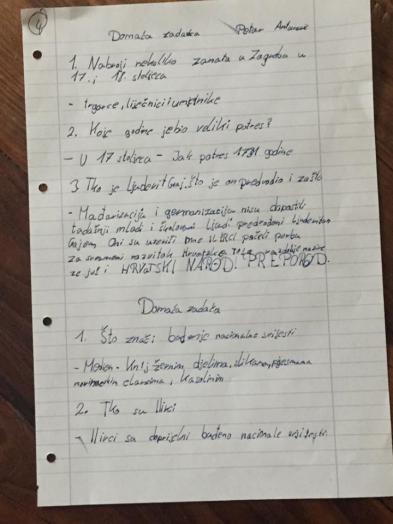 4
Domaća zadaća Petar Antunović
1. Nabroji nekoliko zanata u Zagrebu u
17. i 18. stoljeću
- trgovce, liječnici i umjetnike
2. Koje godine je bio veliki potres?
- U 17 stoljeću - Jak potres godine
3. Tko je Ljudevit Gaj, što je on predvodio i zašto
- Mađarizacija i germanizacija nisu dopustili
tadašnji mladi i školovani ljudi predvođeni Ljudevitom
Gajem. Oni su uzeli ime ILIRCI početi borbu
za razvitak Hrvatske
se još i HRVATSKI NAROD. PREPOROD.
Domaća zadaća
1. Što znači buđenje nacionalne svijesti
- djelima, slikama, pjesmama
člancima, kazalištu
2. Tko su Ilirci
- Ilirci su doprijelni buđeno nacionale